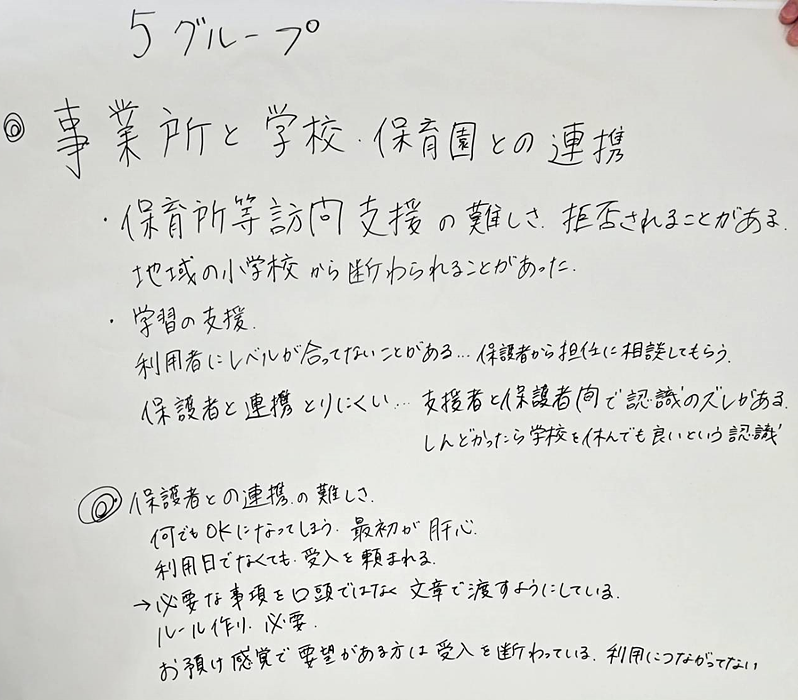 5グループ
◎ 事業所と学校・保育園との連携
・保育所等訪問支援の難しさ. 拒否されることがある.
地域の小学校から断わられることがあった.
・学習の支援.
利用者にレベルが合ってないことがある… 保護者から担任に相談してもらう.
保護者と連携とりにくい… 支援者と保護者間で認識のズレがある.
しんどかったら学校を休んでも良いという認識
◎ 保護者との連携の難しさ.
何でもOKになってしまう. 最初が肝心.
利用日でなくても. 受入を頼まれる.
→必要な事項を口頭ではなく文章で渡すようにしている.
ルール作り. 必要.
お預け感覚で要望がある方は受入を断わっている. 利用につながってない